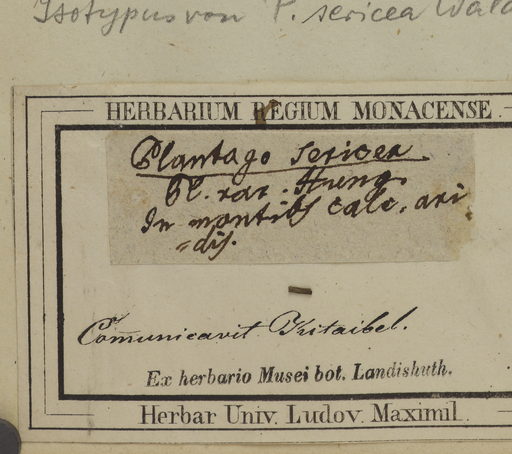 Isotypus von P. sericea Wald
HERBARIUM REGIUM MONACENSE
Plantago sericea.
Pl. rar. Hung.
In montibs calc. ari
=dis.
Comunicavit Kitaibel.
Ex herbario Musei bot. Landishuth.
Herbar Univ. Ludov. Maximil.